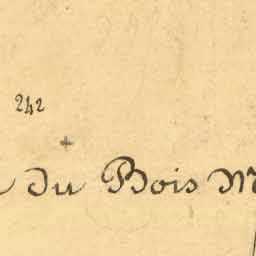 242
du Bois